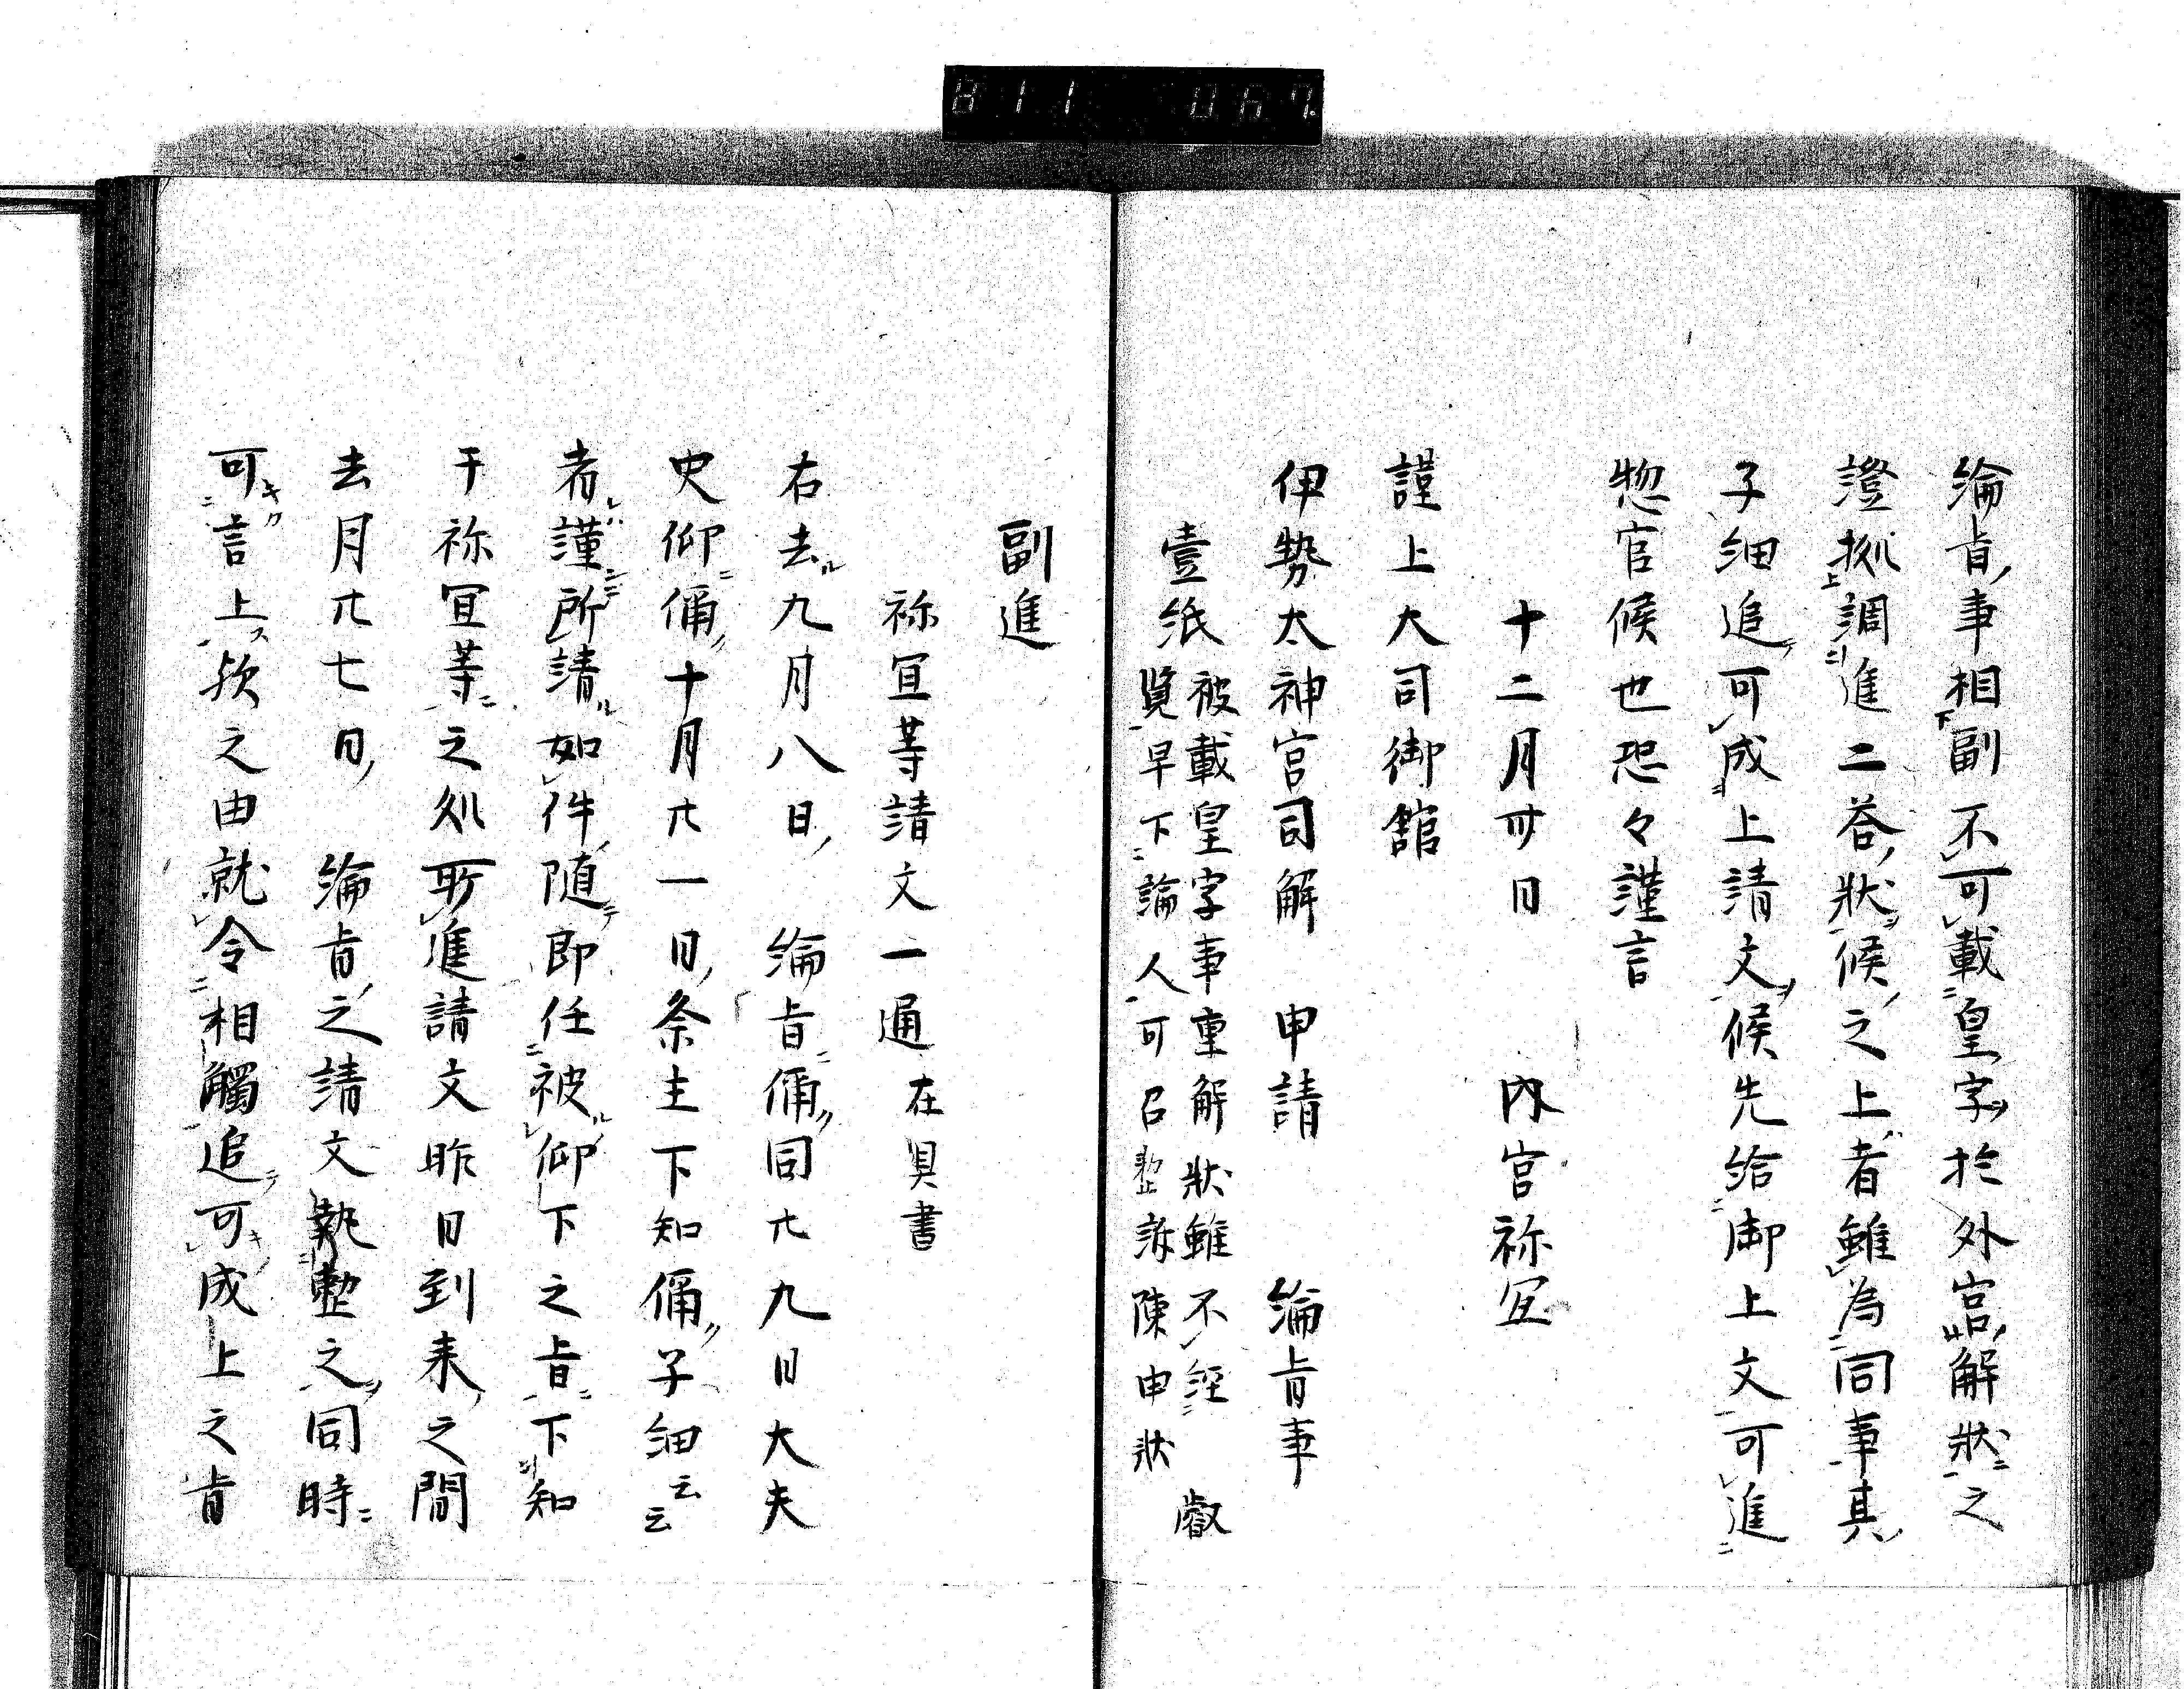 綸旨事相副不可載皇字於外宮解状之
證拠調進二答状候之上者雖為同事其
子細追可成上請文候先給御上文可進
惣官候也恐々謹言
十二月卅日　内宮祢宜
謹上大司御館
伊勢太神宮司解　申請　綸旨事
壹紙被載皇字事重解狀雖不経　叡
覧早下論人可召整訴陳申狀
副進
祢宜等請文一通在具書
右去九月八日　綸旨偁同廿九日大夫
史仰偁十月廿一日祭主下知偁子細云云
者謹所請如件随即任被仰下之旨下知
于祢宜等之処所進請文昨日到来之間
去月廿七日　綸旨之請文執整之同時
可言上欤之由就令相觸追可成上之旨